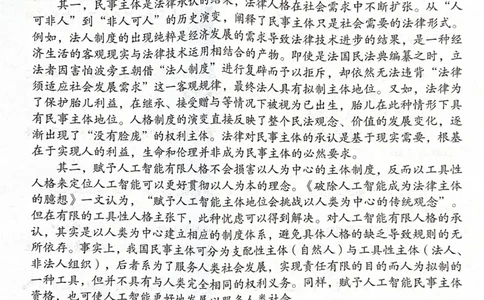 其一，民事主体是法律承认的结果，法律人格在社会需求中不断扩张。从“人
可非人”到“非人可人”的历史演变，阐释了民事主体只是社会需要的法律形式。
例如，法人制度的出现纯粹是经济发展的需求导致法律技术进步的结果，是一种经
济生活的客观现实与法律技术运用相结合的产物。即使是法国民法典编纂之时，立
法者因害怕波旁王朝借“法人制度”进行复辟而予以拒斥，却依然无法违背“法律
须适应社会发展需求”这一客观规律，最终法人具有拟制主体地位。又如，法律为
了保护胎儿利益，在继承、接受赠与等情况下被视为已出生，胎儿在此种情形下具
有民事主体地位。人格制度的演变直接反映了整个民法观念、价值的发展变化，逐
渐出现了“没有脸庞”的权利主体。法律对民事主体的承认是基于现实需要，根基
在于实现人的利益，生命和伦理并非成为民事主体的必然要求。
其二，赋予人工智能有限人格不会损害以人为中心的主体制度，反而以工具性
人格来定位人工智能可以更好贯彻以人为本的理念。《破除人工智能成为法律主体
的臆想》一文认为，“赋予人工智能主体地位会挑战以人类为中心的传统观念”。
但在有限的工具性人格主张下，此种忧虑可以得到解决。对人工智能有限人格的承
认，其实是以人类为中心建立相应的制度体系，避免具体人格的缺乏导致规则的无
所依存。事实上，我国民事主体可分为支配性主体（自然人）与工具性主体（法人、
非法人组织），后者系为了服务人类社会发展，实现责任有限的目的而人为拟制的
一种工具，但并不具有与人类完全相同的权利义务。同样，赋予人工智能民事主体
资格，也可使人工智能更好地发展以服务人类社会